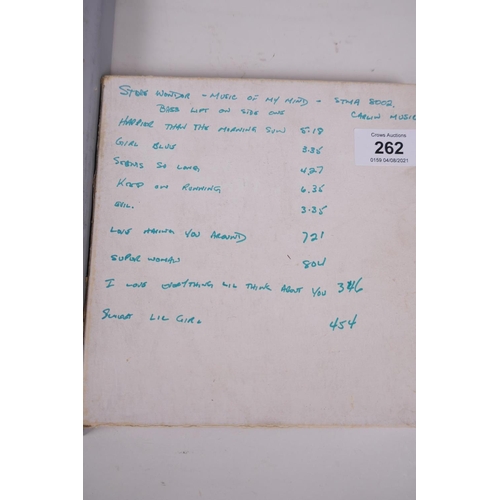 STEVE WONDER - MUSIC OF MY MIND - STMA 8002.
BASS LIFT ON SIDE ONE CARLIN MUSIC
HAPPIER THAN THE MORNING SUN 5.18
Crows Auctions
262
0159 04/08/2021
GIRL BLUE 3.35
SEEMS SO LONG 4.27
KEEP ON RUNNING 6.35
EVIL. 3.35
LOVE HAVING YOU AROUND 721
SUPER WOMAN 804
I LOVE EVERYTHING LIL THINK ABOUT YOU 346
SWEET LIL GIRL 454